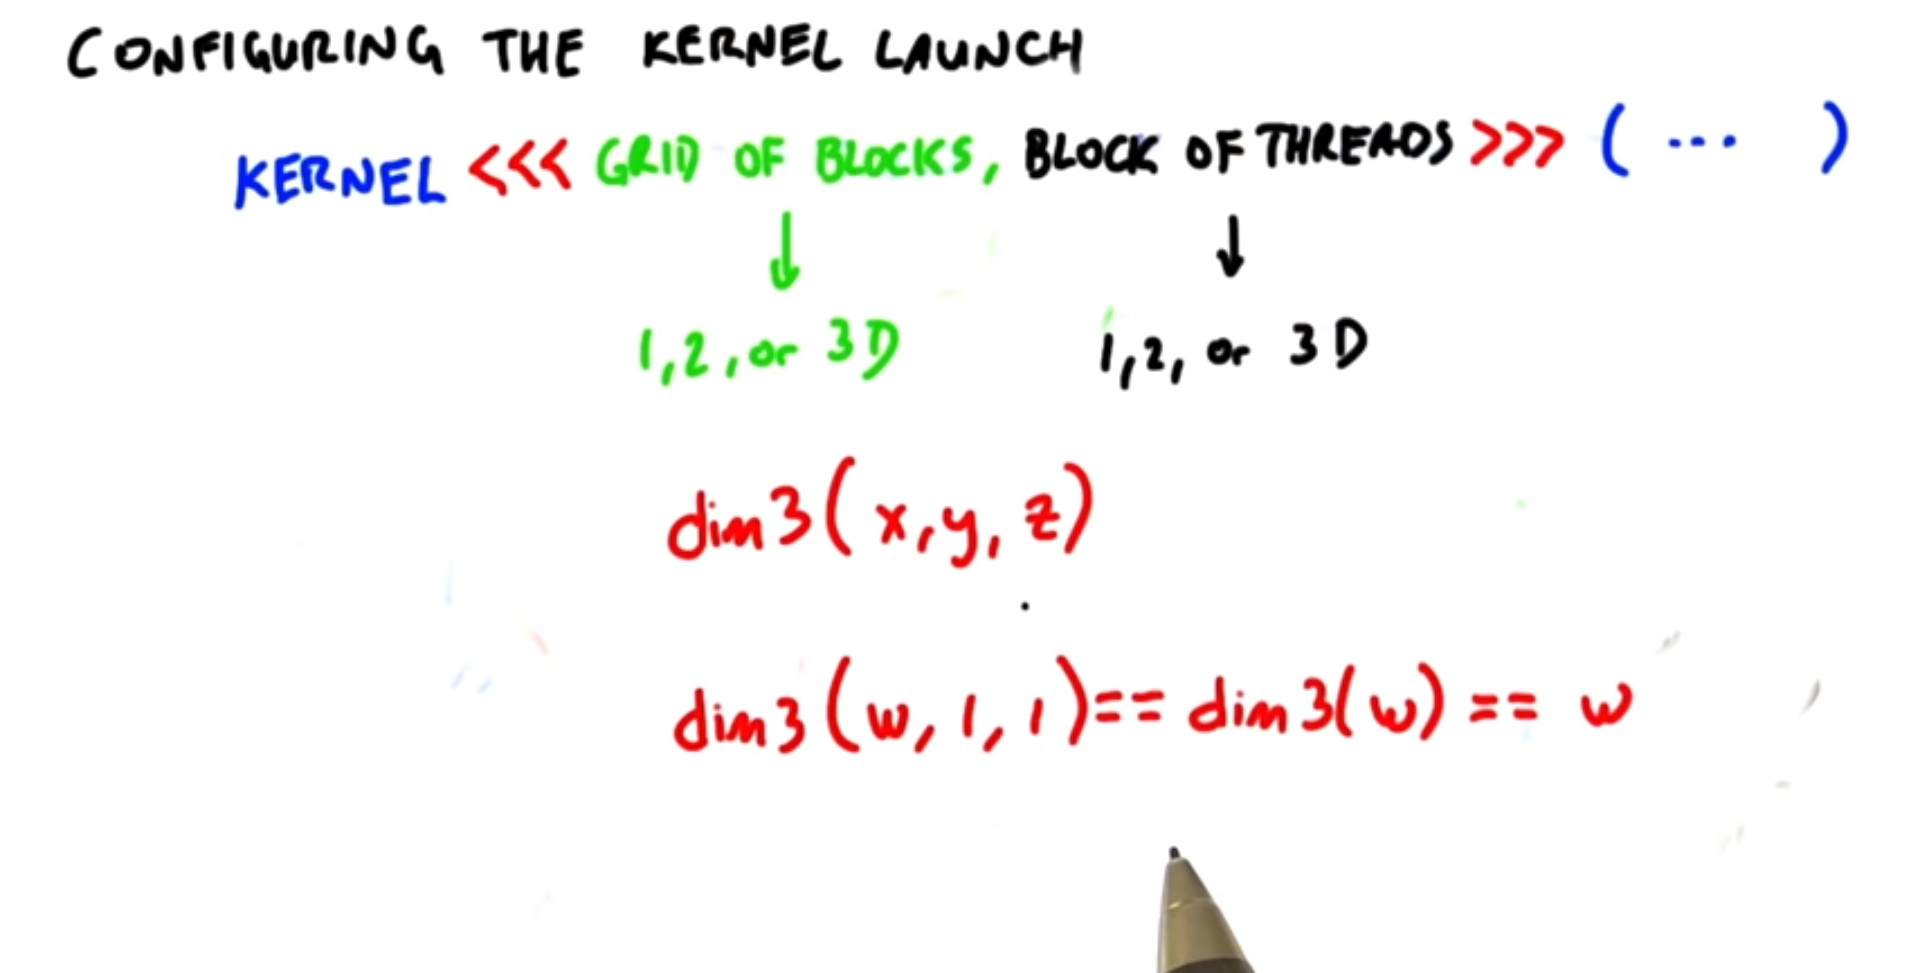 CONFIGURING THE KERNEL LAUNCH
KERNEL <<< GRID OF BLOCKS, BLOCK OF THREADS >>> ( ... )
1,2, or 3D 1,2, or 3D
dim3(x,y,z)
dim3(w,1,1)== dim3(w) == w